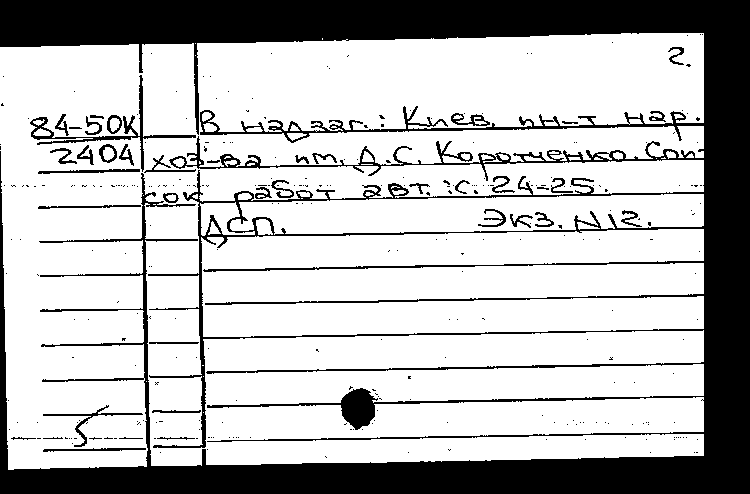 2.
84-50К В надзаг.: Киев. ин-т нар.
2404 хоз-ва им. Д.С. Коротченко. Спи-
сок работ авт.: с. 24-25.
ДСП. Экз. N12.
5